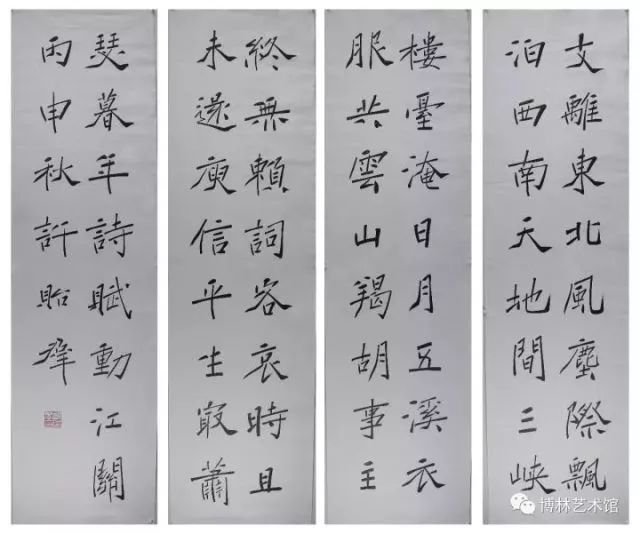 支離東北風塵際飄
泊西南天地間三峽
樓臺淹日月五溪衣
服共雲山羯胡事主
終無賴詞客哀時且
未還庾信平生最蕭
瑟暮年詩賦動江關
丙申秋許貽
博林艺术馆